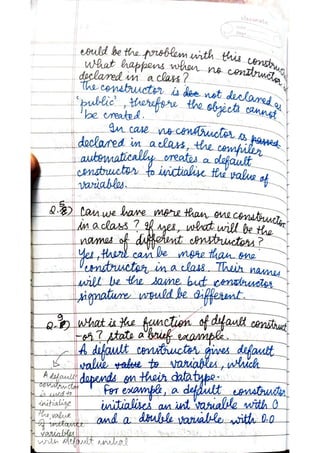 classmate
could be the problem with this constructor
What happens when no constructor is
declared in a class?
The constructor is not declared as
'public', therefore the objects cannot
be created.
In case no constructor is passed
declared in a class, the compiler
automatically creates a default
constructor to initialise the value of
variables.
Q.8) 5 Can we have more than one constructor
in a class? If yes, what will be the
names of different constructors?
Yes, there can be more than one
constructor in a class. Their names
will be the same but constructor
signature would be different.
Q. 9 What is the function of default construct
-or? State a brief example.
A default constructor gives default
value value to variables, which
depends on their datatype.
For example, a default constructor
initialises an int variable with 0
and a double variable with 0.0
A default
constructor
is used to
initialize
the value
of instance
variables
with default